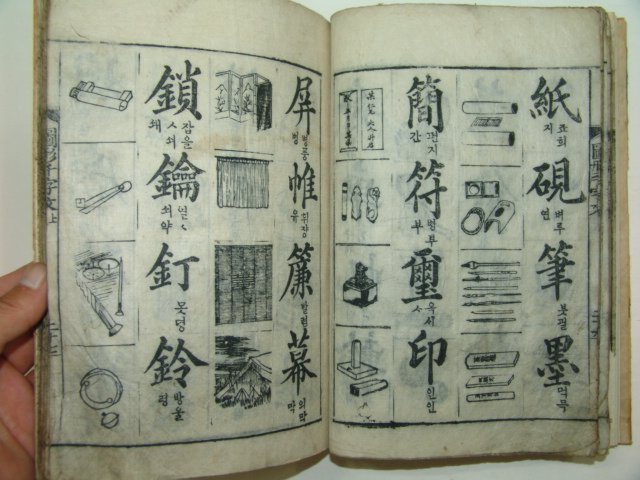 紙 죠희 지
硯 벼루 연
筆 붓필
墨 먹묵
簡 편지 간
符 병부 부
璽 옥시
印 인인
屛 병풍 병
帷 휘장 유
簾 발렴
幕 의막 막
鎖 잠을 쇠 쇄
鑰 열 쇠 약
釘 못뎡
鈴 방울 령
圖形千字文